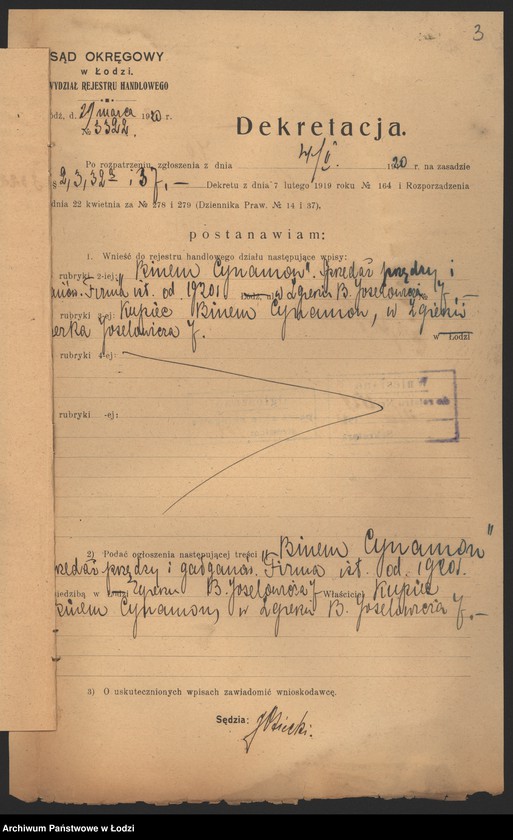 3
SĄD OKRĘGOWY
w Łodzi.
WYDZIAŁ REJESTRU HANDLOWEGO
ódź, d. 29 marca 1920 r.
№ 3322.
Dekretacja.
Po rozpatrzeniu zgłoszenia z dnia 1920 r. na zasadzie
2, 3, 32 i 37, — Dekretu z dnia 7 lutego 1919 roku № 164 i Rozporządzenia
dnia 22 kwietnia za № 278 i 279 (Dziennika Praw. № 14 i 37),
postanawiam:
1. Wnieść do rejestru handlowego działu następujące wpisy:
rubryki 2-ej: "Binem Cynamon". Sprzedaż przędzy i
Firma ist. od 1920 r. w Zgierzu B. Joselowicza 7. —
rubryki 3-ej: Kupiec Binem Cynamon, w Zgierzu
Joselowicza 7. w Łodzi
rubryki 4-ej:
rubryki -ej:
2) Podać ogłoszenia następującej treści „Binem Cynamon"
przędzy i Firma ist. od 1920 r.
iedzibą w Łodzi Zgierzu B. Joselowicza 7 Właściciel Kupiec
Binem Cynamon, w Zgierzu B. Joselowicza 7. —
3) O uskutecznionych wpisach zawiadomić wnioskodawcę.
Sędzia:
Archiwum Państwowe w Łodzi